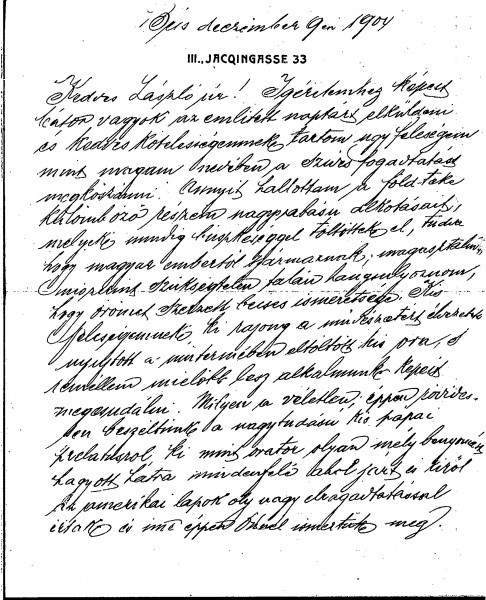 Bécs deczember 9én 1904
III., JACQINGASSE 33
Kedves László úr! Igéretemhez képest
bátor vagyok az emlitett naptárt elküldeni
és kedves kötelességemnek tartom ugy feleségem
mint magam nevében a szives fogadtatást
megköszönni. Annyit hallottam a föld teke
külömböző részein nagyszabásu alkotásait,
melyek mindig büszkeséggel töltöttek el, tudva
hogy magyar embertől származnak,
miszerint szükségtelen talán hangsulyoznom,
hogy örömet szerzett becses ismeretsége. Kis
feleségemnek, ki rajong a művészetért élvezetet
nyujtott a műtermében eltöltött kis óra, s
remélem mielőbb lesz alkalmunk képeit
megcsudálni. Milyen a véletlen; éppen rövides-
sen beszéltünk a nagytudásu kis pápai
prelátusról ki mint orator olyan mély benyomást
hagyott hátra mindenfelé ahol járt és kiről
az amerikai lapok oly nagy elragadtatással
irtak és ime éppen Önnel ismertük meg.